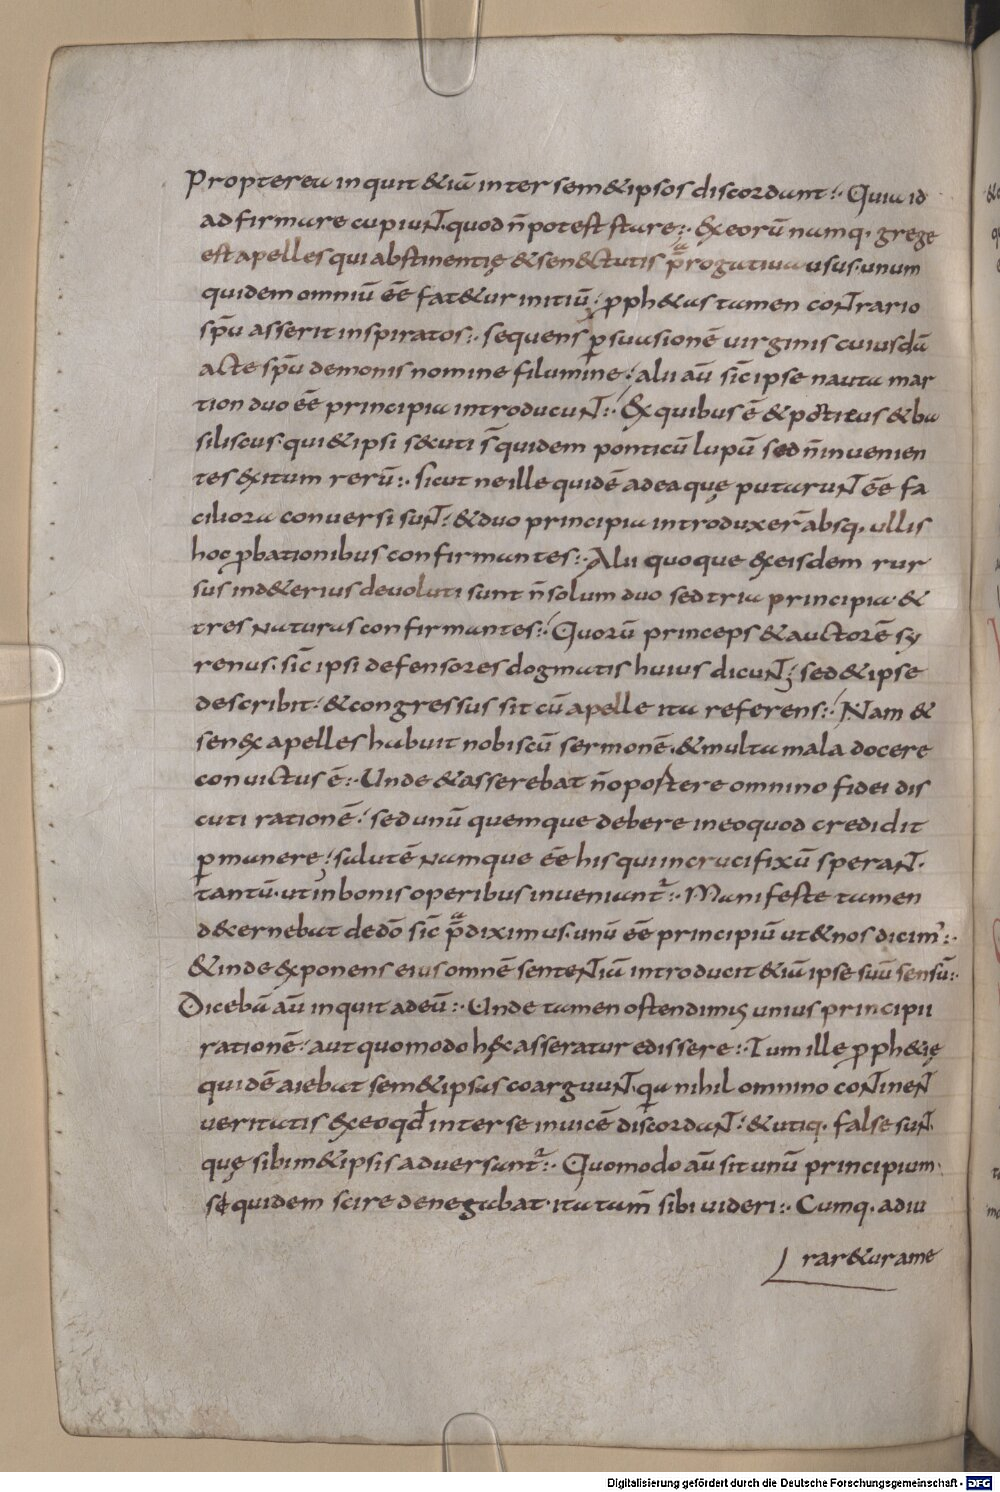 Propterea inquit &iā inter sem&ipsos discordant:· Quia id
adfirmare cupiunt.quod n̄ potest stare:· Exeorū namq· grege
est apelles qui abstinentię &senectutis p̄rogatiua usus·unum
quidem omniū ēē fat&ur initiū; pph&as tamen contrario
spū asserit inspiratos:· sequens ꝑsuasionē uirginis cuiusdā
acte spū demonis nomine filumine; alii aū sic̄ ipse nauta mar
tion duo ēē principia introducunt:· Ex quibus ē & potitus & ba
siliscus·qui&ipsi secuti s̄quidem ponticū lupū sed n̄inuenien
tes exitum rerū:· sicut neille quidē adea quę putarunt ēē fa
ciliora conuersi sunt; &duo principia introduxer̄ absq· ullis
hoc pbationibus confirmantes:· Alii quoque exeisdem rur
sus ind&erius deuoluti sunt n̄ solum duo sed tria principia· &
tres naturas confirmantes:· Quorū princeps & auctorē sy
renus· sic̄ ipsi defensores dogmatis huius dicunt; sed&ipse
describit; &congressus sit cū apelle ita referens:· Nam &
senex apelles habuit nobiscū sermonē·&multa mala docere
conuictus ē:· Unde &asserebat n̄opostere omnino fidei dis
cuti rationē; sed unū quemque debere ineoquod credidit
ꝑmanere; salutē namque ēē his qui incrucifixū sperant·
tantū·ut inbonis operibus inueniant᷑:· Manifeste tamen
decernebat dedō sic̄ p̄diximus·unū ēē principiū ut&nos dicim᾿:·
&inde exponens eius omnē sententiā introducit &iā ipse suū sensū:·
Dicebā aū inquit adeū:· Unde tamen ostendimus unius principii
rationē; aut quomodo hęc asseratur edissere:· Tum ille pph&ię
quidē aiebat sem&ipsas coarguunt·qa nihil omnino continent
ueritatis exeoqd̄ inter se inuicē discordant; &utiq· false sunt
quę sibim&ipsis aduersant᷑:· Quomodo aū sit unū principium·
se quidem scire denegabat·ita tam̄ sibi uideri:· Cumq· adiu
rar&ura me
Digitalisierung gefördert durch die Deutsche Forschungsgemeinschaft - DFG